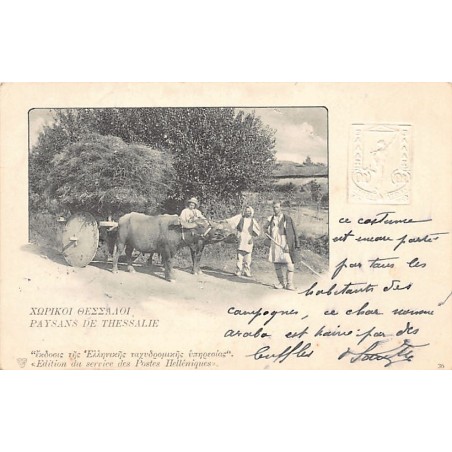 ΧΩΡΙΚΟΙ ΘΕΣΣΑΛΟΙ
PAYSANS DE THESSALIE
"Ἔκδοσις τῆς Ἑλληνικῆς ταχυδρομικῆς ὑπηρεσίας".
«Edition du service des Postes Helléniques».
ce costume
est encore porté
par tous les
habitants des
campagnes, ce char nommé
araba et trainé par des
buffles